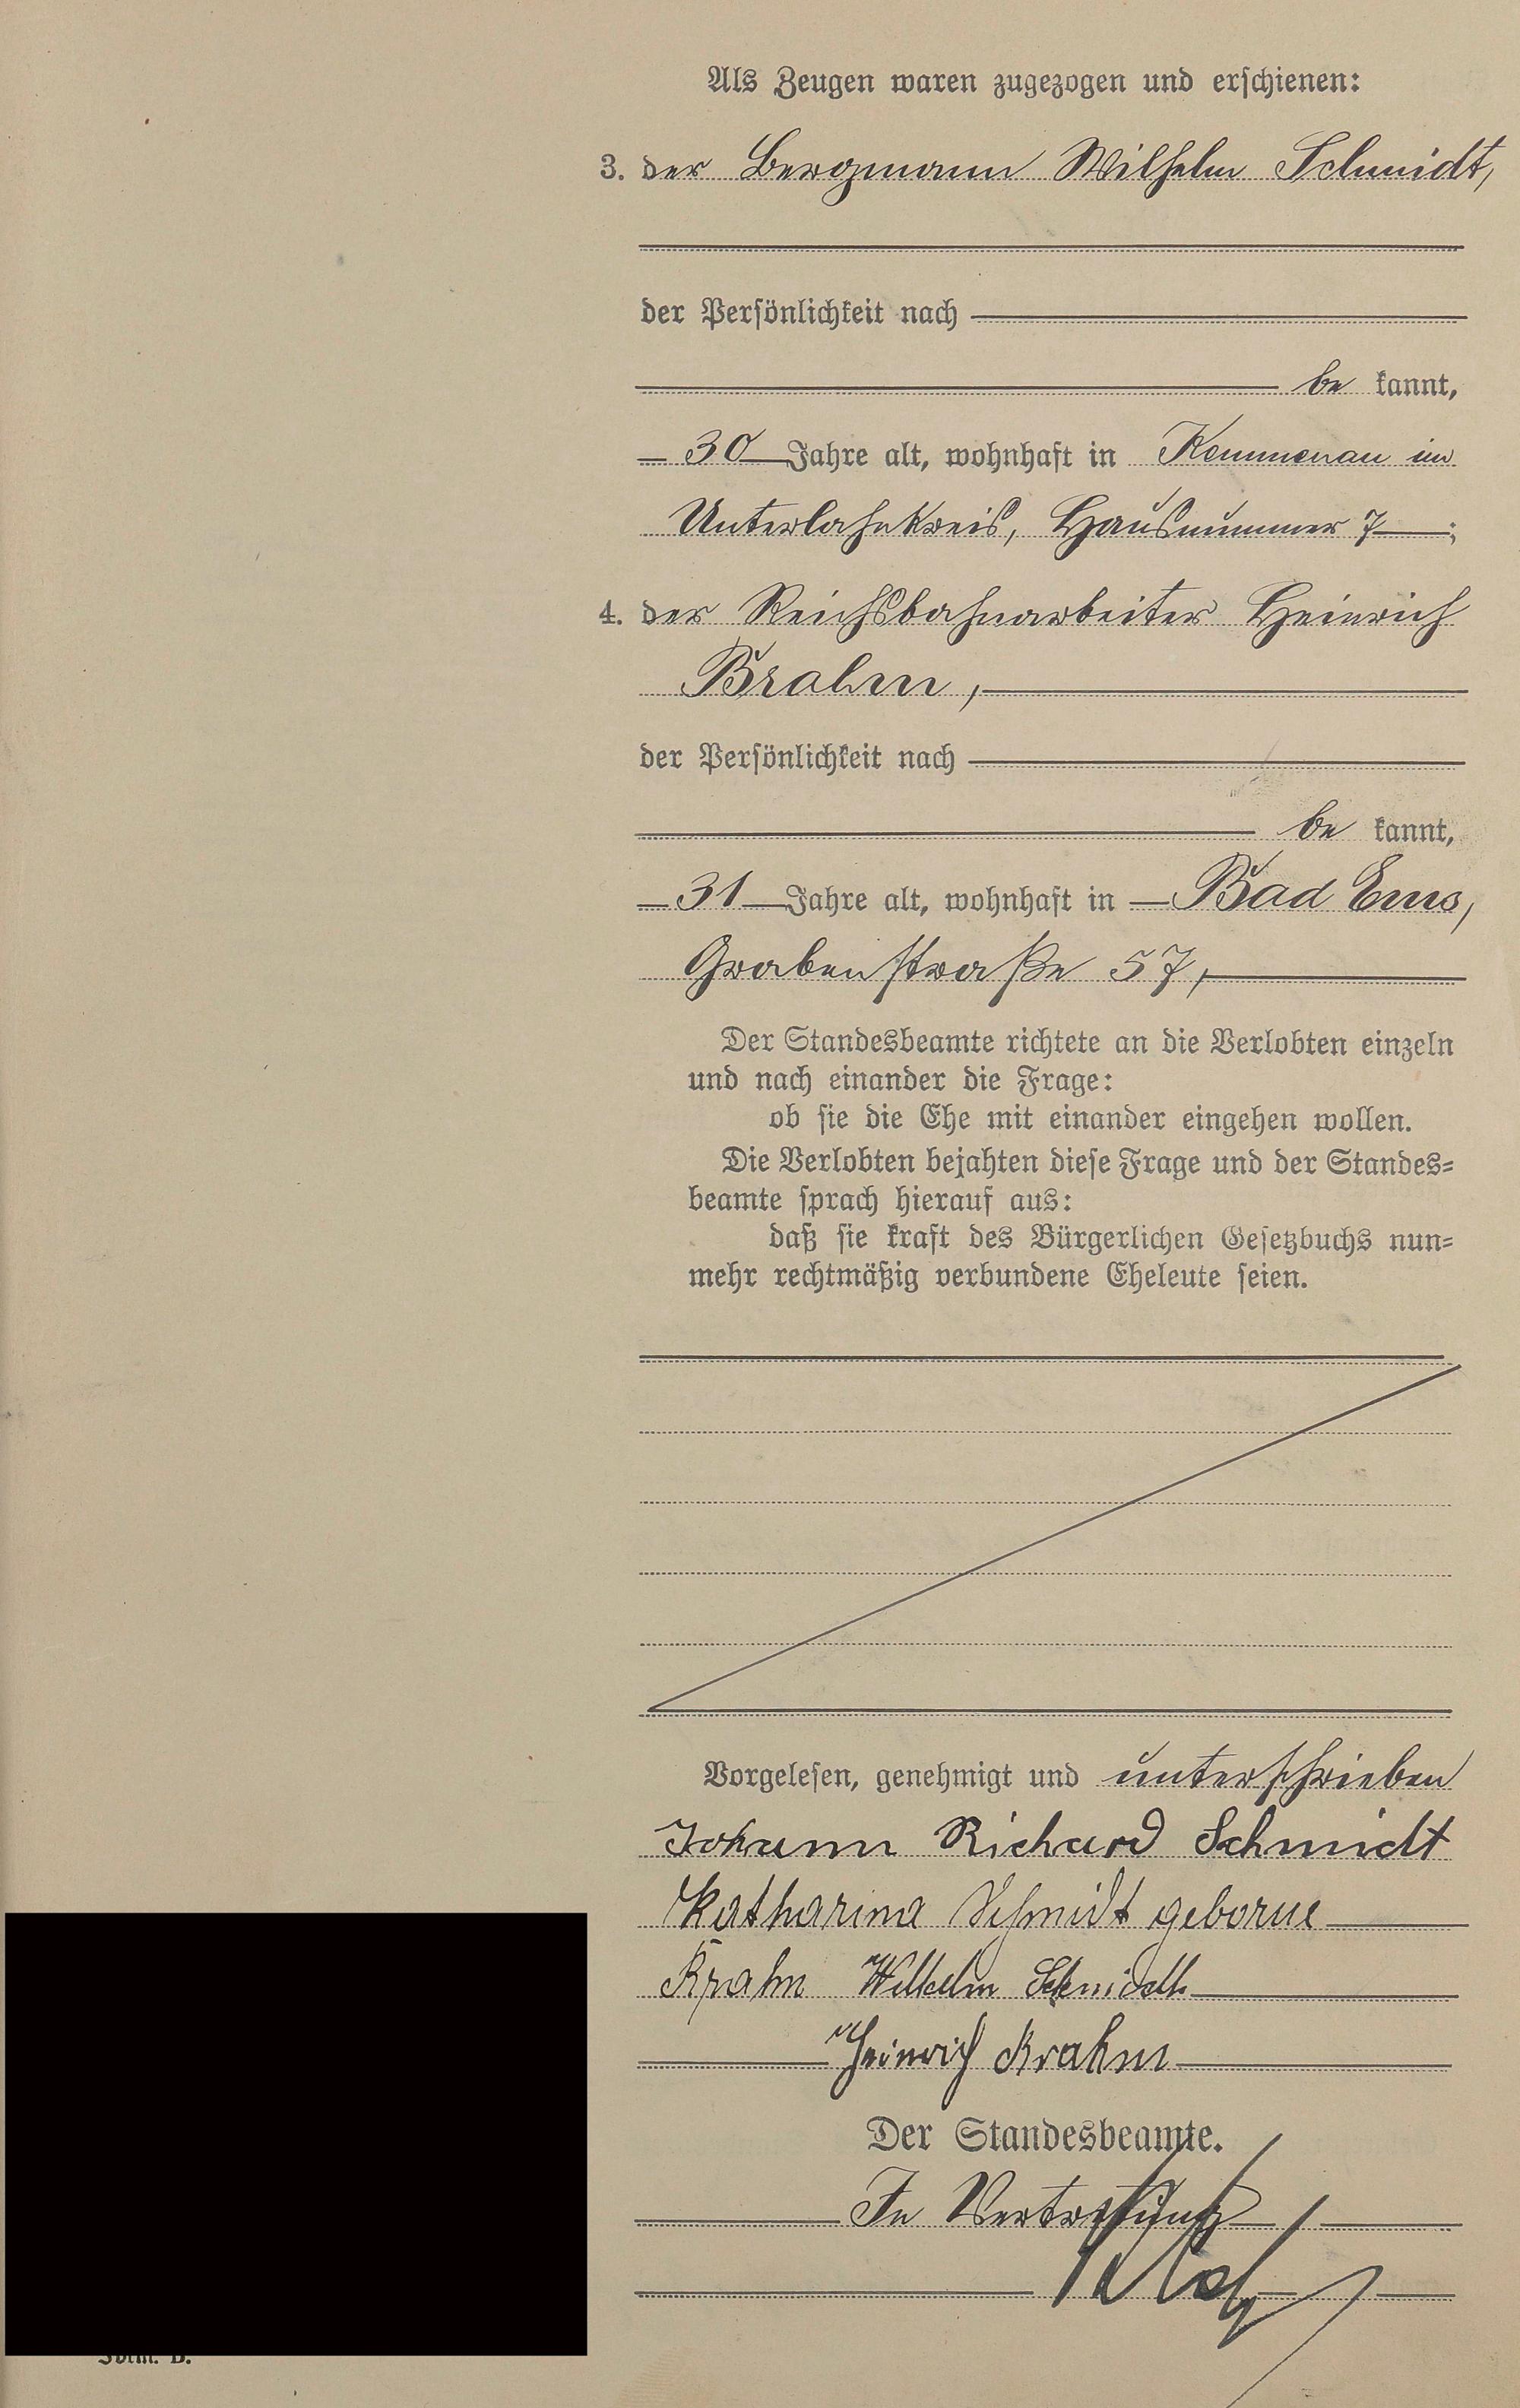 Als Zeugen waren zugezogen und erschienen:
3. der Bergmann Wilhelm Schmidt,
der Persönlichkeit nach
be kannt,
30 Jahre alt, wohnhaft in Kemmenau im
Unterlahnkreis, Hausnummer 7 ;
4. der Reichsbahnarbeiter Heinrich
Brahm,
der Persönlichkeit nach
be kannt,
31 Jahre alt, wohnhaft in Bad Ems,
Grabenstraße 57,
Der Standesbeamte richtete an die Verlobten einzeln
und nach einander die Frage:
ob sie die Ehe mit einander eingehen wollen.
Die Verlobten bejahten diese Frage und der Standes-
beamte sprach hierauf aus:
daß sie kraft des Bürgerlichen Gesetzbuchs nun-
mehr rechtmäßig verbundene Eheleute seien.
Vorgelesen, genehmigt und unterschrieben
Johann Richard Schmidt
Katharina Schmidt geborne
Wilhelm Schmidt
Heinrich
Der Standesbeamte.
In Vertretung